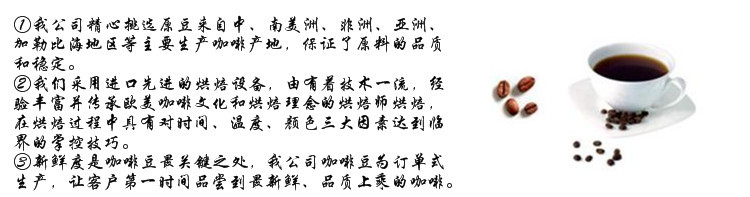 ①我公司精心挑选原豆来自中、南美洲、非洲、亚洲、
加勒比海地区等主要生产咖啡产地，保证了原料的品质
和稳定。
②我们采用进口先进的烘焙设备，由有着技术一流，经
验丰富并传承欧美咖啡文化和烘焙理念的烘焙师烘焙，
在烘焙过程中具有对时间、温度、颜色三大因素达到临
界的掌控技巧。
③新鲜度是咖啡豆最关键之处，我公司咖啡豆为订单式
生产，让客户第一时间品尝到最新鲜、品质上乘的咖啡。